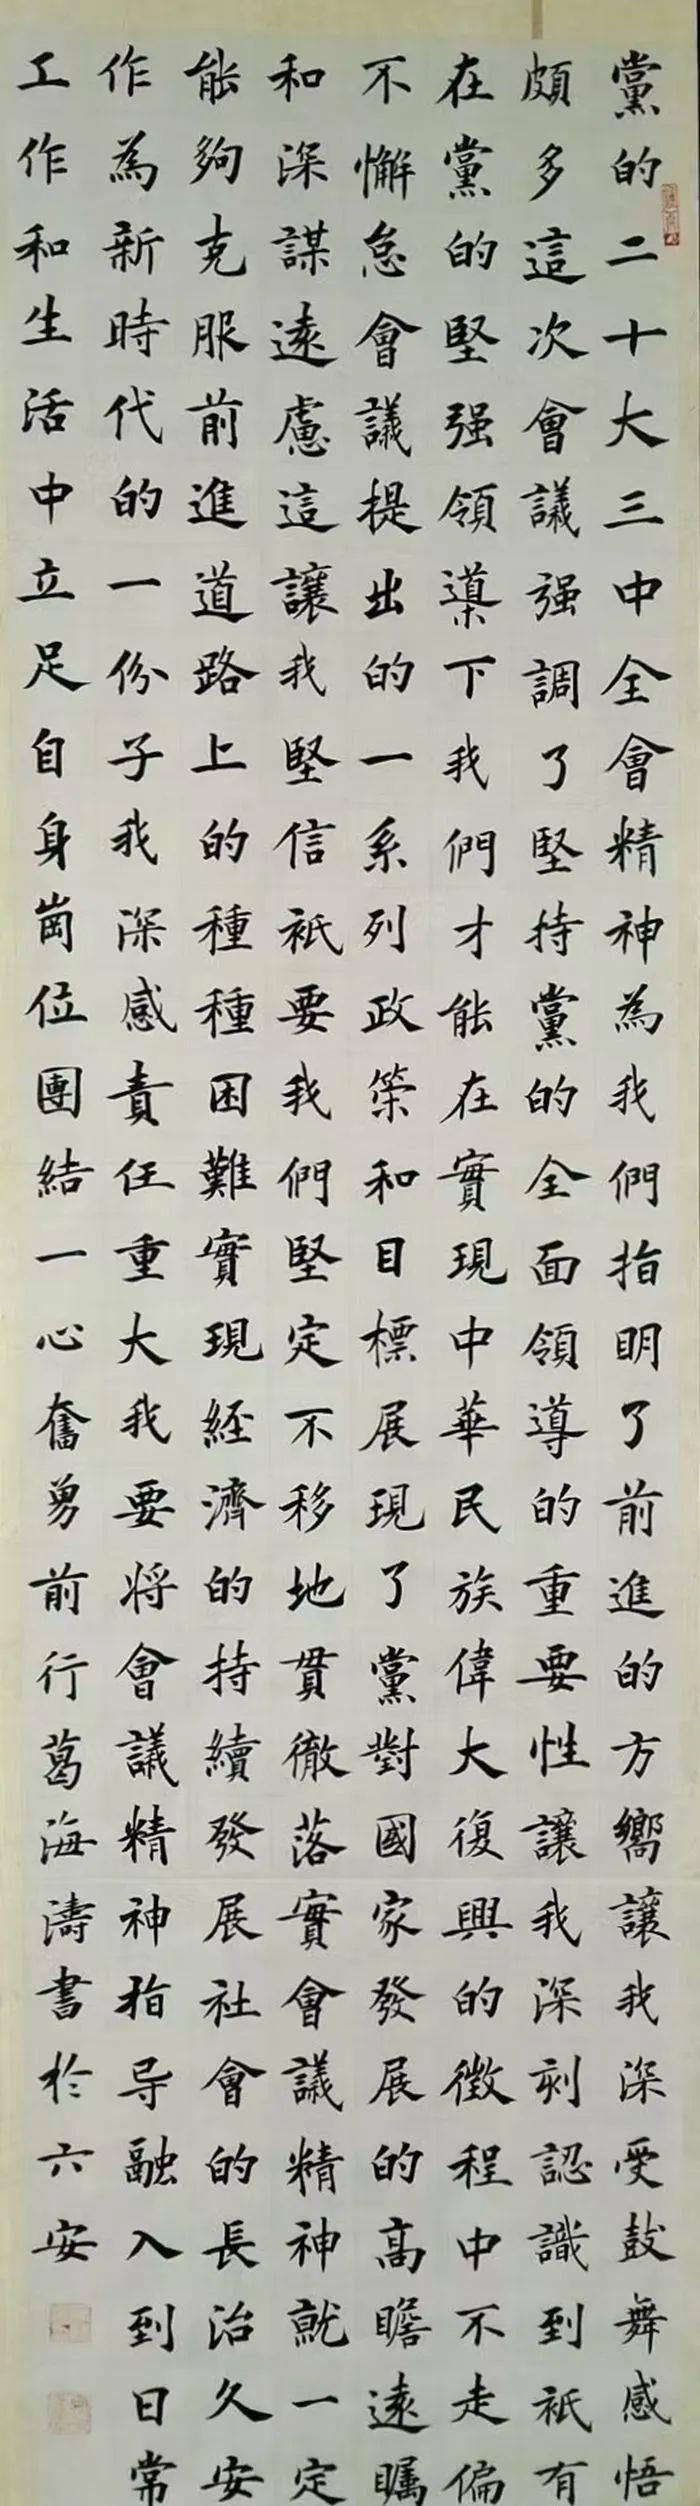 黨的二十大三中全會精神為我們指明了前進的方嚮讓我深受鼓舞感悟
頗多這次會議强調了堅持黨的全面領導的重要性讓我深刻認識到衹有
在黨的堅强領導下我們才能在實現中華民族偉大復興的徵程中不走偏
不懈怠會議提出的一系列政策和目標展現了黨對國家發展的高瞻遠矚
和深謀遠慮這讓我堅信衹要我們堅定不移地貫徹落實會議精神就一定
能夠克服前進道路上的種種困難實現經濟的持續發展社會的長治久安
作為新時代的一份子我深感責任重大我要将會議精神指导融入到日常
工作和生活中立足自身崗位團結一心奮勇前行葛海濤書於六安